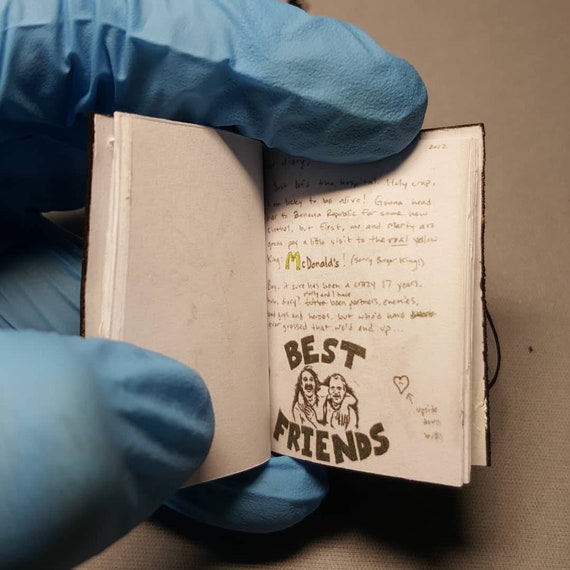 2012
diary,
Just left the hospital. Holy crap,
I am lucky to be alive! Gonna head
over to Banana Republic for some new
clothes, but first, me and Marty are
gonna pay a little visit to the real yellow
King McDonald's! (sorry Burger King)
it sure has been a crazy 17 years.
diary? Marty and I have been partners, enemies,
bad guys and heroes, but who'd have
ever guessed that we'd end up...
BEST
FRIENDS
upside
down